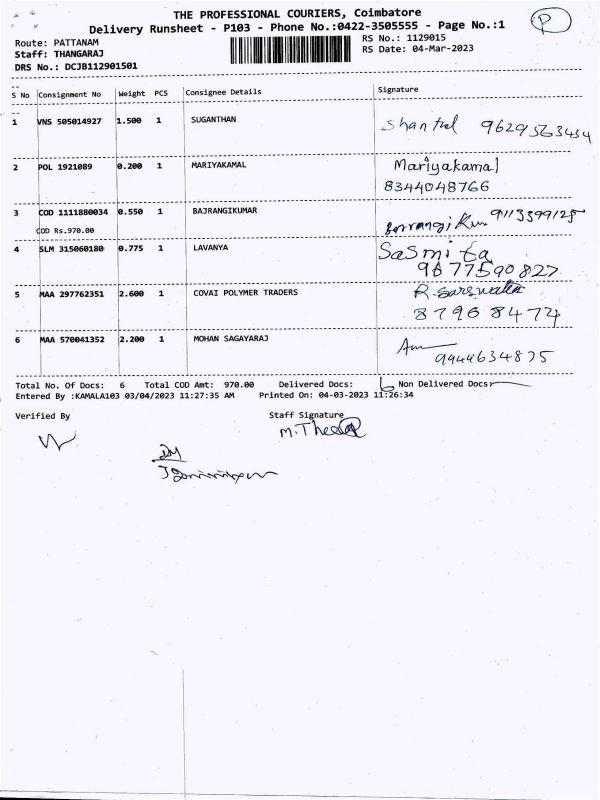 THE PROFESSIONAL COURIERS, Coimbatore
Delivery Runsheet - P103 - Phone No.:0422-3505555 - Page No.:1
P
Route: PATTANAM
RS No.: 1129015
Staff: THANGARAJ
RS Date: 04-Mar-2023
DRS No.: DCJB112901501
S No Consignment No Weight PCS Consignee Details Signature
1 VNS 505014927 1.500 1 SUGANTHAN 9629563434
2 POL 1921089 0.200 1 MARIYAKAMAL Mariyakamal
8344048766
3 COD 1111880034 0.550 1 BAJRANGIKUMAR
COD Rs.970.00
4 SLM 315060180 0.775 1 LAVANYA Sasmita
9677590827
5 MAA 297762351 2.600 1 COVAI POLYMER TRADERS
6 MAA 570041352 2.200 1 MOHAN SAGAYARAJ
9944634875
Total No. Of Docs: 6 Total COD Amt: 970.00 Delivered Docs: 6 Non Delivered Docs:
Entered By :KAMALA103 03/04/2023 11:27:35 AM Printed On: 04-03-2023 11:26:34
Verified By Staff Signature